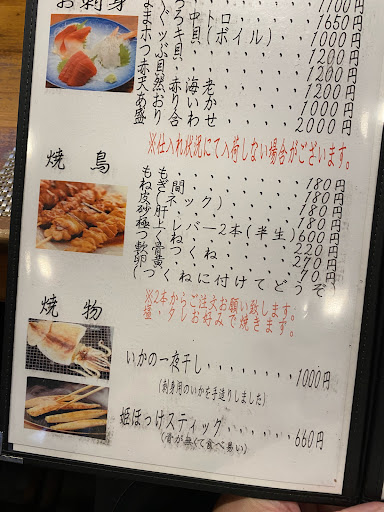 お刺身
まぐろ 1100円
まぐろ中トロ・・・・・・1650円
ホッキ貝(ボイル)・・・・1000円
つぶ貝・・・・・・・・1200円
赤貝・・・・・・・・・1200円
天然赤海老・・・・・・1200円
あおりいか・・・・・・1000円
盛り合わせ・・・・・・2000円
※仕入れ状況にて入荷しない場合がございます。
焼鳥
もも・・・・・・・・・180円
ねぎ間・・・・・・・・180円
皮(ネック)・・・・・・180円
砂肝・・・・・・・・・180円
極上レバー2本(半生)・600円
つくね・・・・・・・・220円
軟骨つくね・・・・・・270円
卵黄・・・・・・・・・70円
(つくねに付けてどうぞ)
※2本からご注文お願い致します。
塩・タレお好みで焼きます。
焼物
いかの一夜干し・・・・・・・・1000円
(刺身用のいかを手造りしました)
姫ほっけスティック・・・・・・660円
(骨が無くて食べ易い)